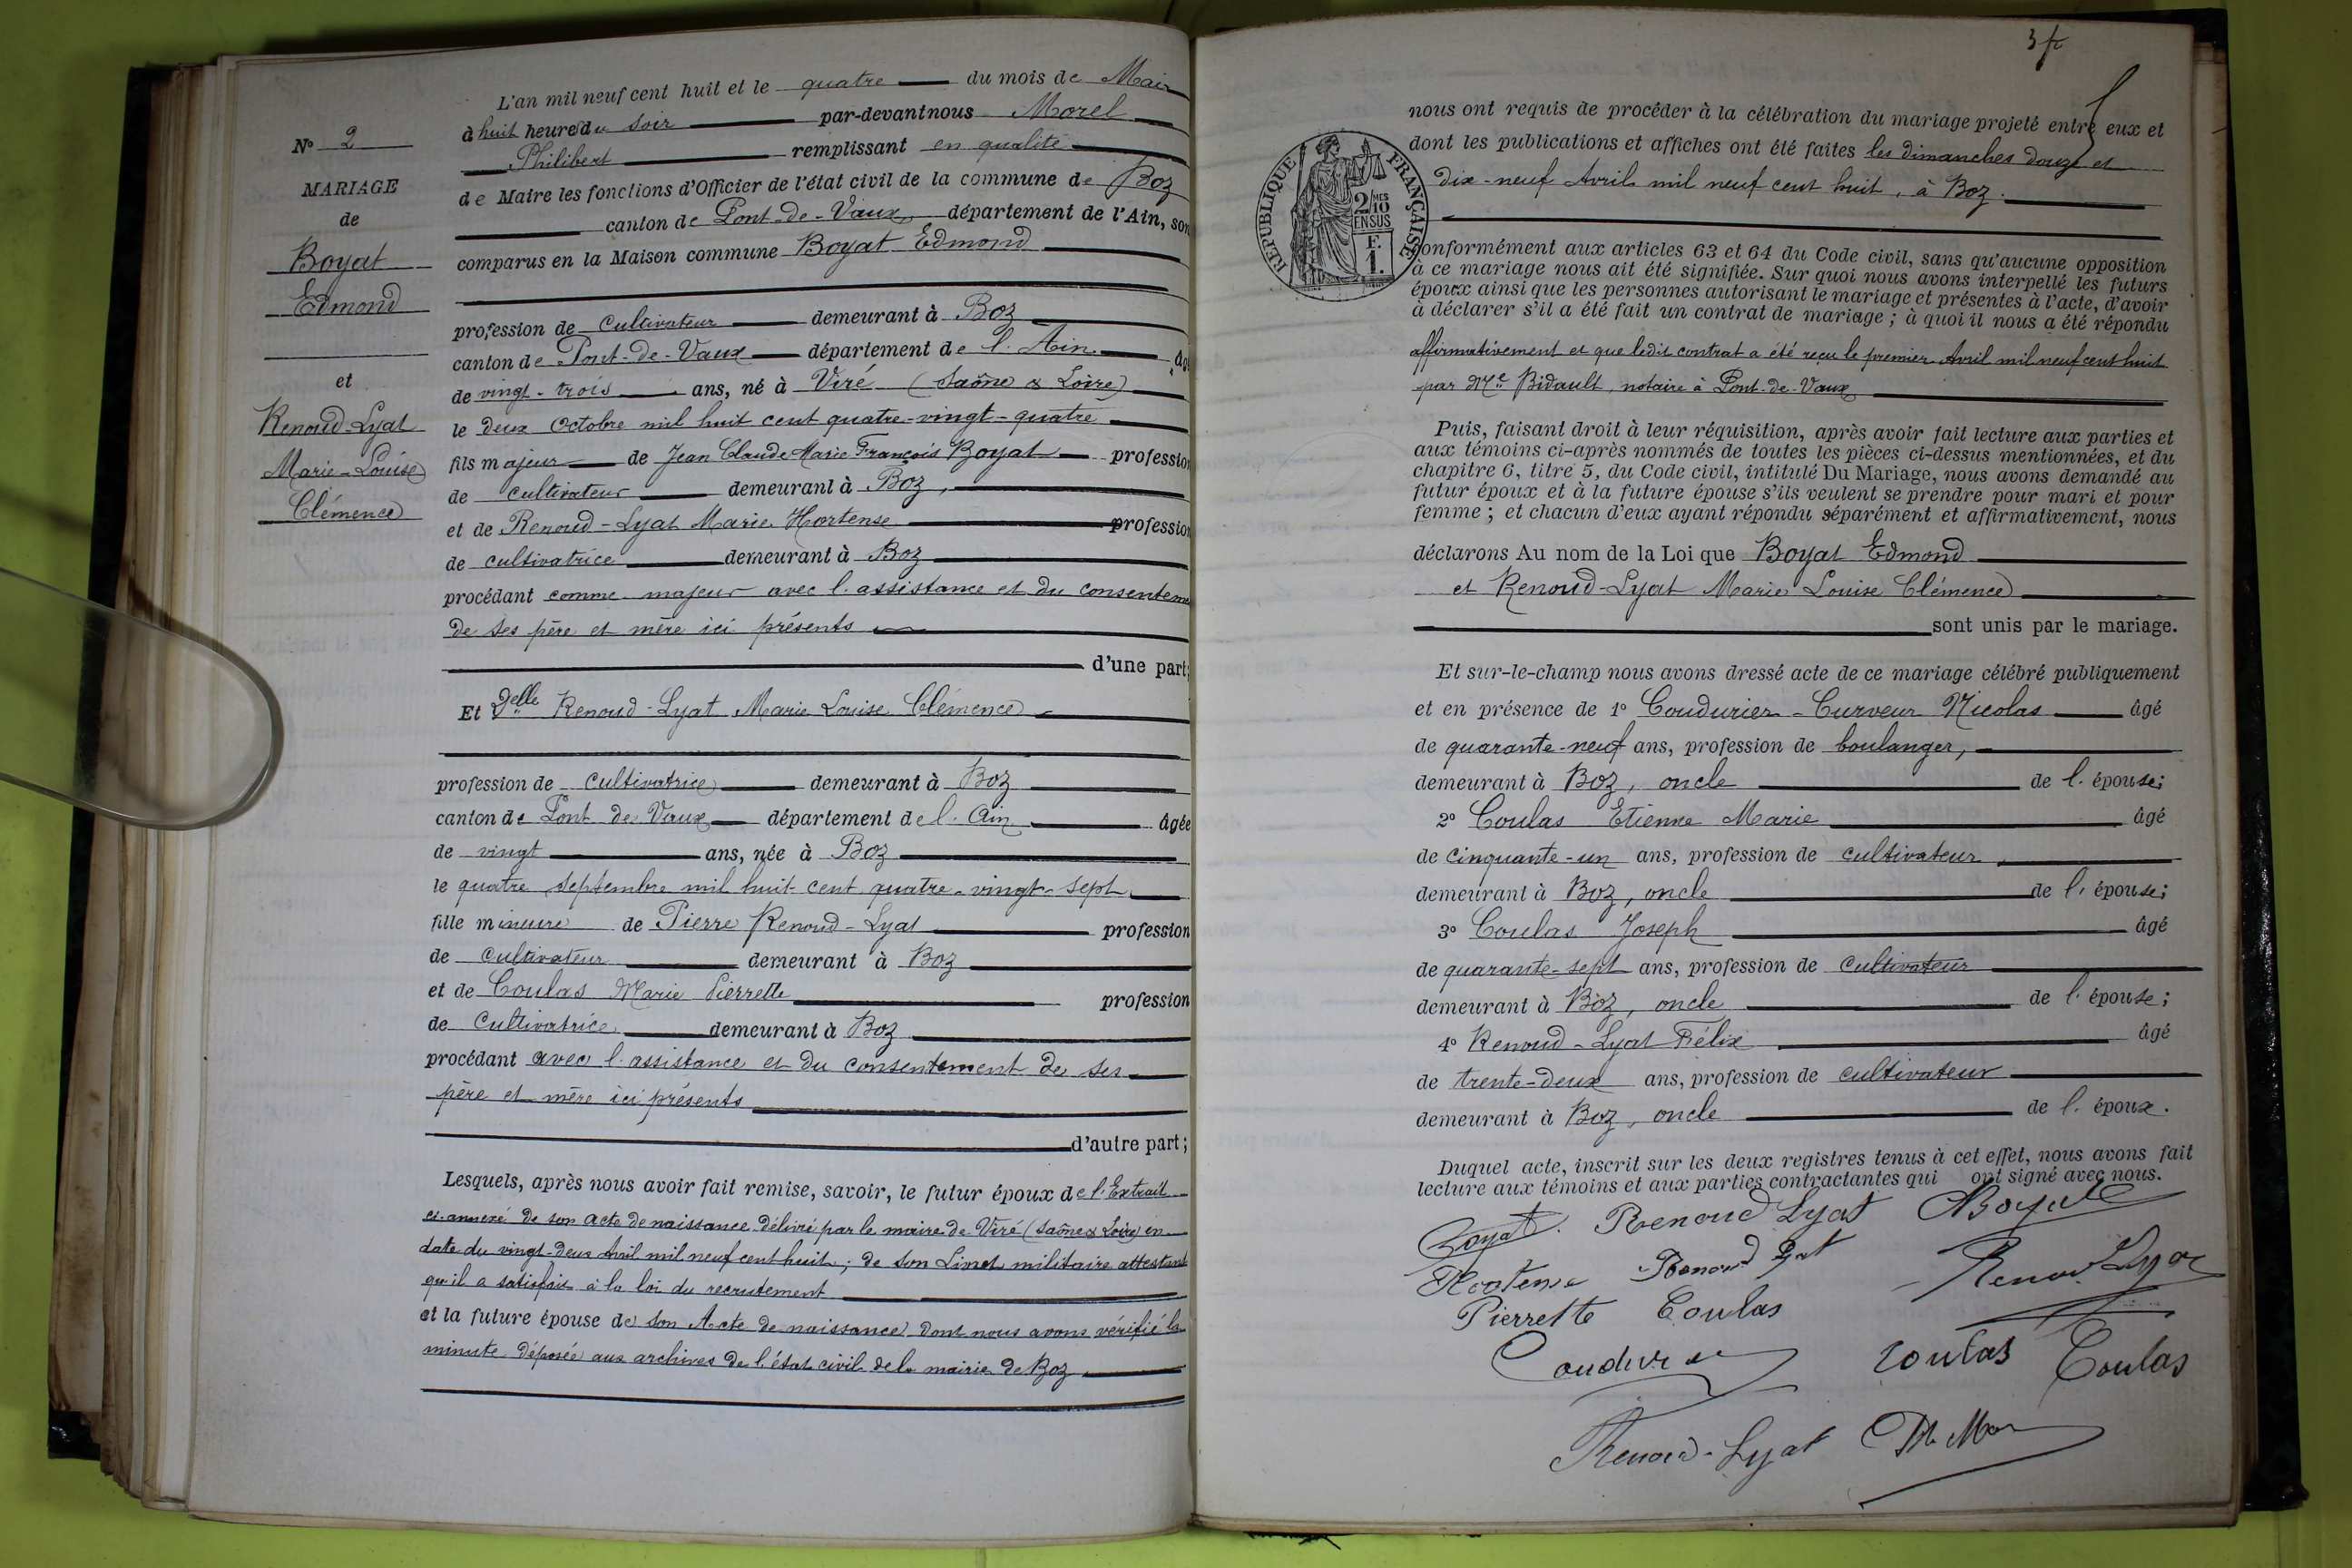 N° 2
MARIAGE
de
Boyat
Edmond
et
Renoud-Lyat
Marie-Louise
Clémence
L'an mil neuf cent huit et le quatre du mois de Mai
à huit heures du soir par-devant nous Morel
Philibert remplissant en qualité
de Maire les fonctions d'Officier de l'état civil de la commune de Boz
canton de Pont-de-Vaux, département de l'Ain, son
comparus en la Maison commune Boyat Edmond
profession de cultivateur demeurant à Boz
canton de Pont-de-Vaux département de l'Ain âgé
de vingt-trois ans, né à Viré (Saône & Loire)
le deux Octobre mil huit cent quatre-vingt-quatre
fils majeur de Jean Claude Marie François Boyat profession
de cultivateur demeurant à Boz,
et de Renoud-Lyat Marie Hortense profession
de cultivatrice demeurant à Boz
procédant comme majeur avec l'assistance et du consentem
de ses père et mère ici présents
d'une part;
Et Delle Renoud-Lyat Marie Louise Clémence
profession de cultivatrice demeurant à Boz
canton de Pont de Vaux département de l'Ain âgée
de vingt ans, née à Boz
le quatre septembre mil huit-cent quatre-vingt-sept
fille mineure de Pierre Renoud-Lyat profession
de cultivateur demeurant à Boz
et de Coulas Marie Pierrette profession
de cultivatrice demeurant à Boz
procédant avec l'assistance et du consentement de ses
père et mère ici présents
d'autre part;
Lesquels, après nous avoir fait remise, savoir, le futur époux de l'Extrait
ci-annexé de son acte de naissance délivré par le maire de Viré (Saône & Loire) en
date du vingt-deux Avril mil neuf cent huit; de son Livret militaire attestant
qu'il a satisfait à la loi du recrutement
et la future épouse de son Acte de naissance dont nous avons vérifié la
minute déposée aux archives de l'état civil de la mairie de Boz
nous ont requis de procéder à la célébration du mariage projeté entre eux et
dont les publications et affiches ont été faites les dimanches douze et
dix-neuf Avril mil neuf cent huit, à Boz.
RÉPUBLIQUE FRANÇAISE
2/10 MES
EN SUS
F.
1.
conformément aux articles 63 et 64 du Code civil, sans qu'aucune opposition
à ce mariage nous ait été signifiée. Sur quoi nous avons interpellé les futurs
époux ainsi que les personnes autorisant le mariage et présentes à l'acte, d'avoir
à déclarer s'il a été fait un contrat de mariage; à quoi il nous a été répondu
affirmativement et que ledit contrat a été reçu le premier Avril mil neuf cent huit
par Me Bidault, notaire à Pont-de-Vaux
Puis, faisant droit à leur réquisition, après avoir fait lecture aux parties et
aux témoins ci-après nommés de toutes les pièces ci-dessus mentionnées, et du
chapitre 6, titre 5, du Code civil, intitulé Du Mariage, nous avons demandé au
futur époux et à la future épouse s'ils veulent se prendre pour mari et pour
femme; et chacun d'eux ayant répondu séparément et affirmativement, nous
déclarons Au nom de la Loi que Boyat Edmond
et Renoud-Lyat Marie Louise Clémence
sont unis par le mariage.
Et sur-le-champ nous avons dressé acte de ce mariage célébré publiquement
et en présence de 1° Coudurier-Curveur Nicolas âgé
de quarante-neuf ans, profession de boulanger,
demeurant à Boz, oncle de l'épouse;
2° Coulas Etienne Marie âgé
de cinquante-un ans, profession de cultivateur,
demeurant à Boz, oncle de l'épouse;
3° Coulas Joseph âgé
de quarante-sept ans, profession de cultivateur
demeurant à Boz, oncle de l'épouse;
4° Renoud-Lyat Félix âgé
de trente-deux ans, profession de cultivateur
demeurant à Boz, oncle de l'époux.
Duquel acte, inscrit sur les deux registres tenus à cet effet, nous avons fait
lecture aux témoins et aux parties contractantes qui ont signé avec nous.
Boyat. Renoud Lyat Boyat
Hortense Renoud Lyat Renoud Lyat
Pierrette Coulas
Coudurier Coulas Coulas
Renoud-Lyat Ph Morel